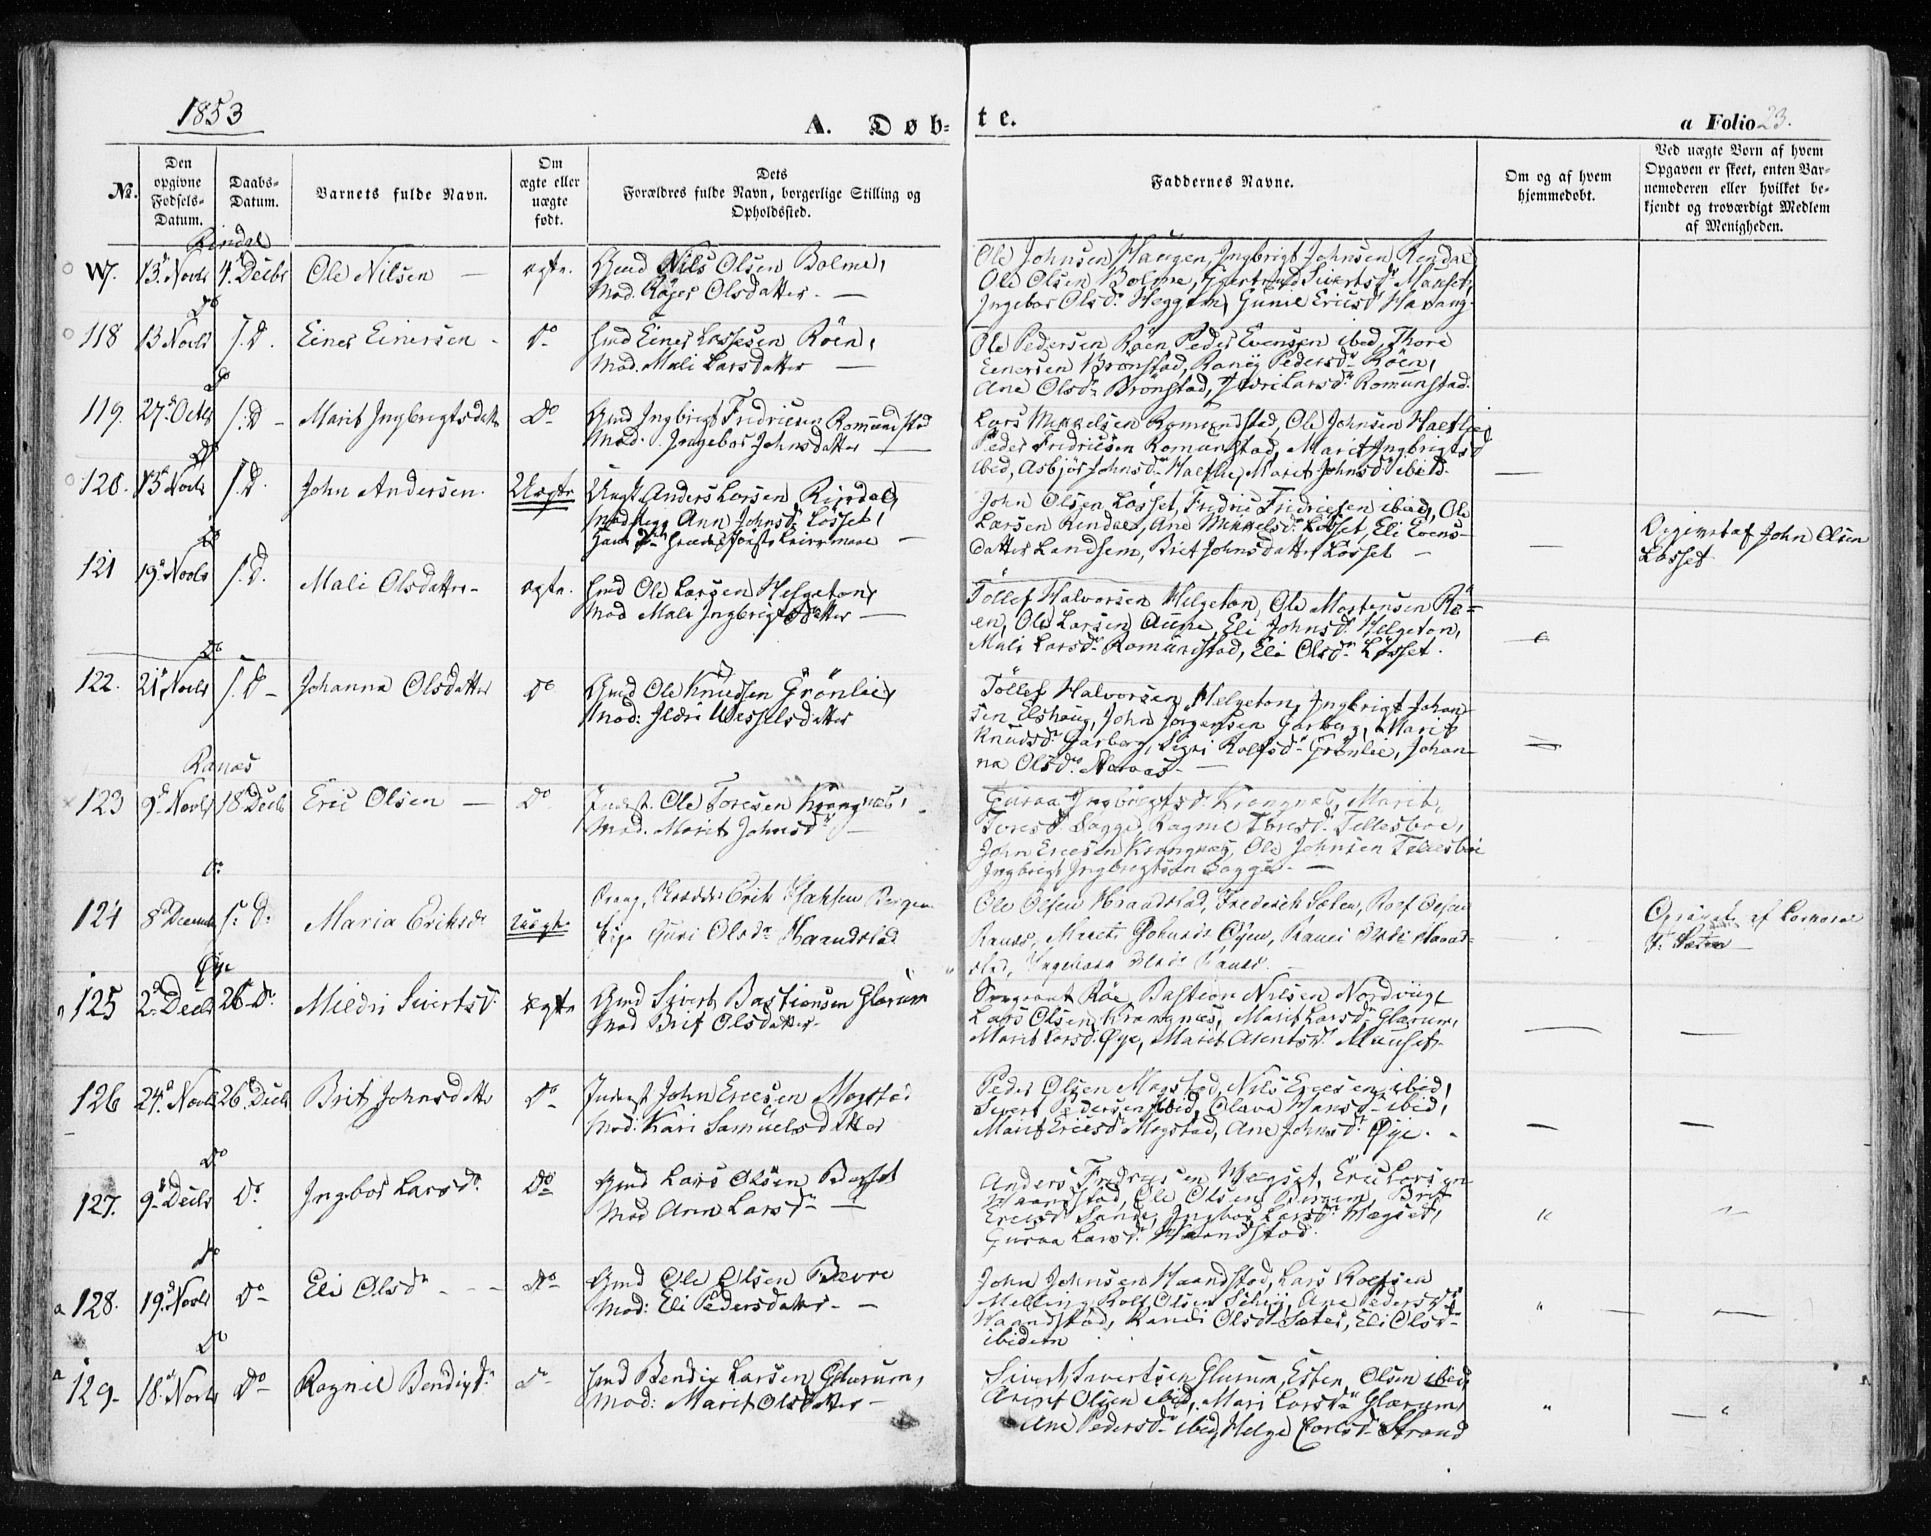 1853
A. Døb-
te.
a Folio 23.
No.
Den opgivne Fødsels-Datum.
Daabs-Datum.
Barnets fulde Navn.
Om ægte eller uægte født.
Dets Forældres fulde Navn, borgerlige Stilling og Opholdssted.
Faddernes Navne.
Om og af hvem hjemmedøbt.
Ved uægte Børn af hvem Opgaven er skeet, enten Barnemoderen eller hvilket bekjendt og troværdigt Medlem af Menigheden.
Rindal
117. 13. Novbr 4. Decbr Ole Nilsen — ægte. Gmd Nils Olsen Bolme,
Mod. Olsdatter. —
Ole Johnsen Haugen, Ingbrigt Johnsen Rindal
Ole Olsen Bolme, Gjertrud Sivertsdr Mauset,
Ingebor Olsdr Heggem, Gunil Ericsdr
Do
118 13 Novbr s. D. Einer Einersen - Do Gmd Einer Røen,
Mod. Mali Larsdatter —
Ole Pedersen Røen, Peder Evensen ibid, Thore
Einersen Brønstad, Ranøy Pedersdr Røen,
Ane Olsdr Brønstad, Larsdr Romunstad.
Do
119. 27. Octbr s. D - Marit Ingbrigtsdatter Do Gmd Ingbrigt Fredricsen Romundstad
Mod. Ingebor Johnsdatter —
Lars Mikkelsen Romundstad, Ole Johnsen
Peder Fridricsen Romunstad, Marit Ingbrigtsd
ibid, Asbjør Johnsdr Marit Johnsdr ibid.
Do
120. 13 Novbr s. D. John Andersen. Uægte Ungk. Anders Larsen Rindal,
Ann Johnsdr Løsset,
første Leiermaal —
John Olsen Løsset, Fredric Fridricsen ibid, Ole
Larsen Rindal, Ane Mikkelsdr Løsset, Eli Evens-
datter Landsem, Brit Johnsdatter Løsset —
Opgivet af John Olsen
Løsset.
Do
121 19. Novbr s. D. Mali Olsdatter - ægte. Gmd Ole Larsen Helgeton,
Mod Mali Ingbrigtsdatter —
Töllef Halvorsen Helgeton, Ole Mortensen Rø-
en, Ole Larsen Aune, Eli Johnsdr Helgeton,
Mali Larsdr Romundstad, Eli Olsdr Løsset.
Do
122. 21 Novbr s. D - Johanna Olsdatter Do Gmd Ole Knudsen Grönlie,
Mod: Ildri Wesselsdatter
Töllef Halvorsen Helgeton, Ingbrigt Johan-
sen Elshaug, John Jørgensen Garberg, Marit
Knudsdr Garberg, Sigri Rolfsdr Grönlie, Johan-
na Olsdr
Ranæs
123 9. Novbr 18 Decbr Eric Olsen — Do Inderst. Ole Toresen Krangnæs,
Mod. Marit Johnsdr —
Guraa Ingbrigtsdr Krangnæs, Marit
Toresdr Bagge, Ragnil Toresdr Tellesboe,
John Ericsen Krangnæs, Ole Johnsen Tellesboe
Ingbrigt Ingbrigtsen Bagge. —
Do
124 8. Decembr s: D: Maria Eriksdr Uægte Erik Bergen
Pige Guri Olsdr Haandstad
Ole Olsen Haandstad, Frederich Sæter, Rolf Olsen
Ranæs, Marit Øyen, Ranei Olsdr Haand-
stad, Ingeborg Olsdr Ranæs.
Opgivet af
F. Sæter
Øye
125 2. Decbr 26 Do Mildri Sivertsdr ægte Gmd Sivert Bastiansen Glærum
Mod Brit Olsdatter.
Sergeant Røe, Bastian Nilsen Nordviig,
Lars Olsen Krangnæs, Marit Larsdr Glærum,
Marit Larsdr Øye, Marit Arentsdr Mauset. — —
126 24. Novbr 26. Decbr Brit Johnsdatter Do Inderst John Ericsen Mogstad
Mod: Kari Samuelsdatter
Peder Olsen Mogstad, Nils Ericsen ibid,
Sivert Pedersen ibid, Olava Hansdr ibid,
Marit Ericsdr Mogstad, Ane Johnsdr Øye. — —
Do
127. 9. Decbr Do Ingbor Larsdr Do Gmd Lars Olsen
Mod Ann Larsdr —
Anders Fredricsen Eric Larsen
Haandstad, Ole Olsen Brit
Ericsdr Sande, Ingbor Larsdr
Guraa Larsdr Haandstad. " "
Do
128. 19. Novbr Do Eli Olsdr - - - Do Gmd Ole Olsen Bævre
Mod: Eli Pedersdatter. —
John Johnsen Haandstad, Lars Rolfsen
Melling, Rolf Olsen Ane Pedersdr
Haandstad, Ranei Olsdr Sæter, Eli Olsdr
ibidem " — —
Do
129. 18. Novbr Do Ragnil Bendigtsdr Do Gmd Bendix Larsen Glærum,
Mod: Marit Olsdatter —
Sivert Sivertsen Glærum, Esten Olsen ibid,
Arent Olsen ibid, Mari Larsdr Glærum,
Ane Pedersdr ibid, Helge Carlsdr Strand " — "